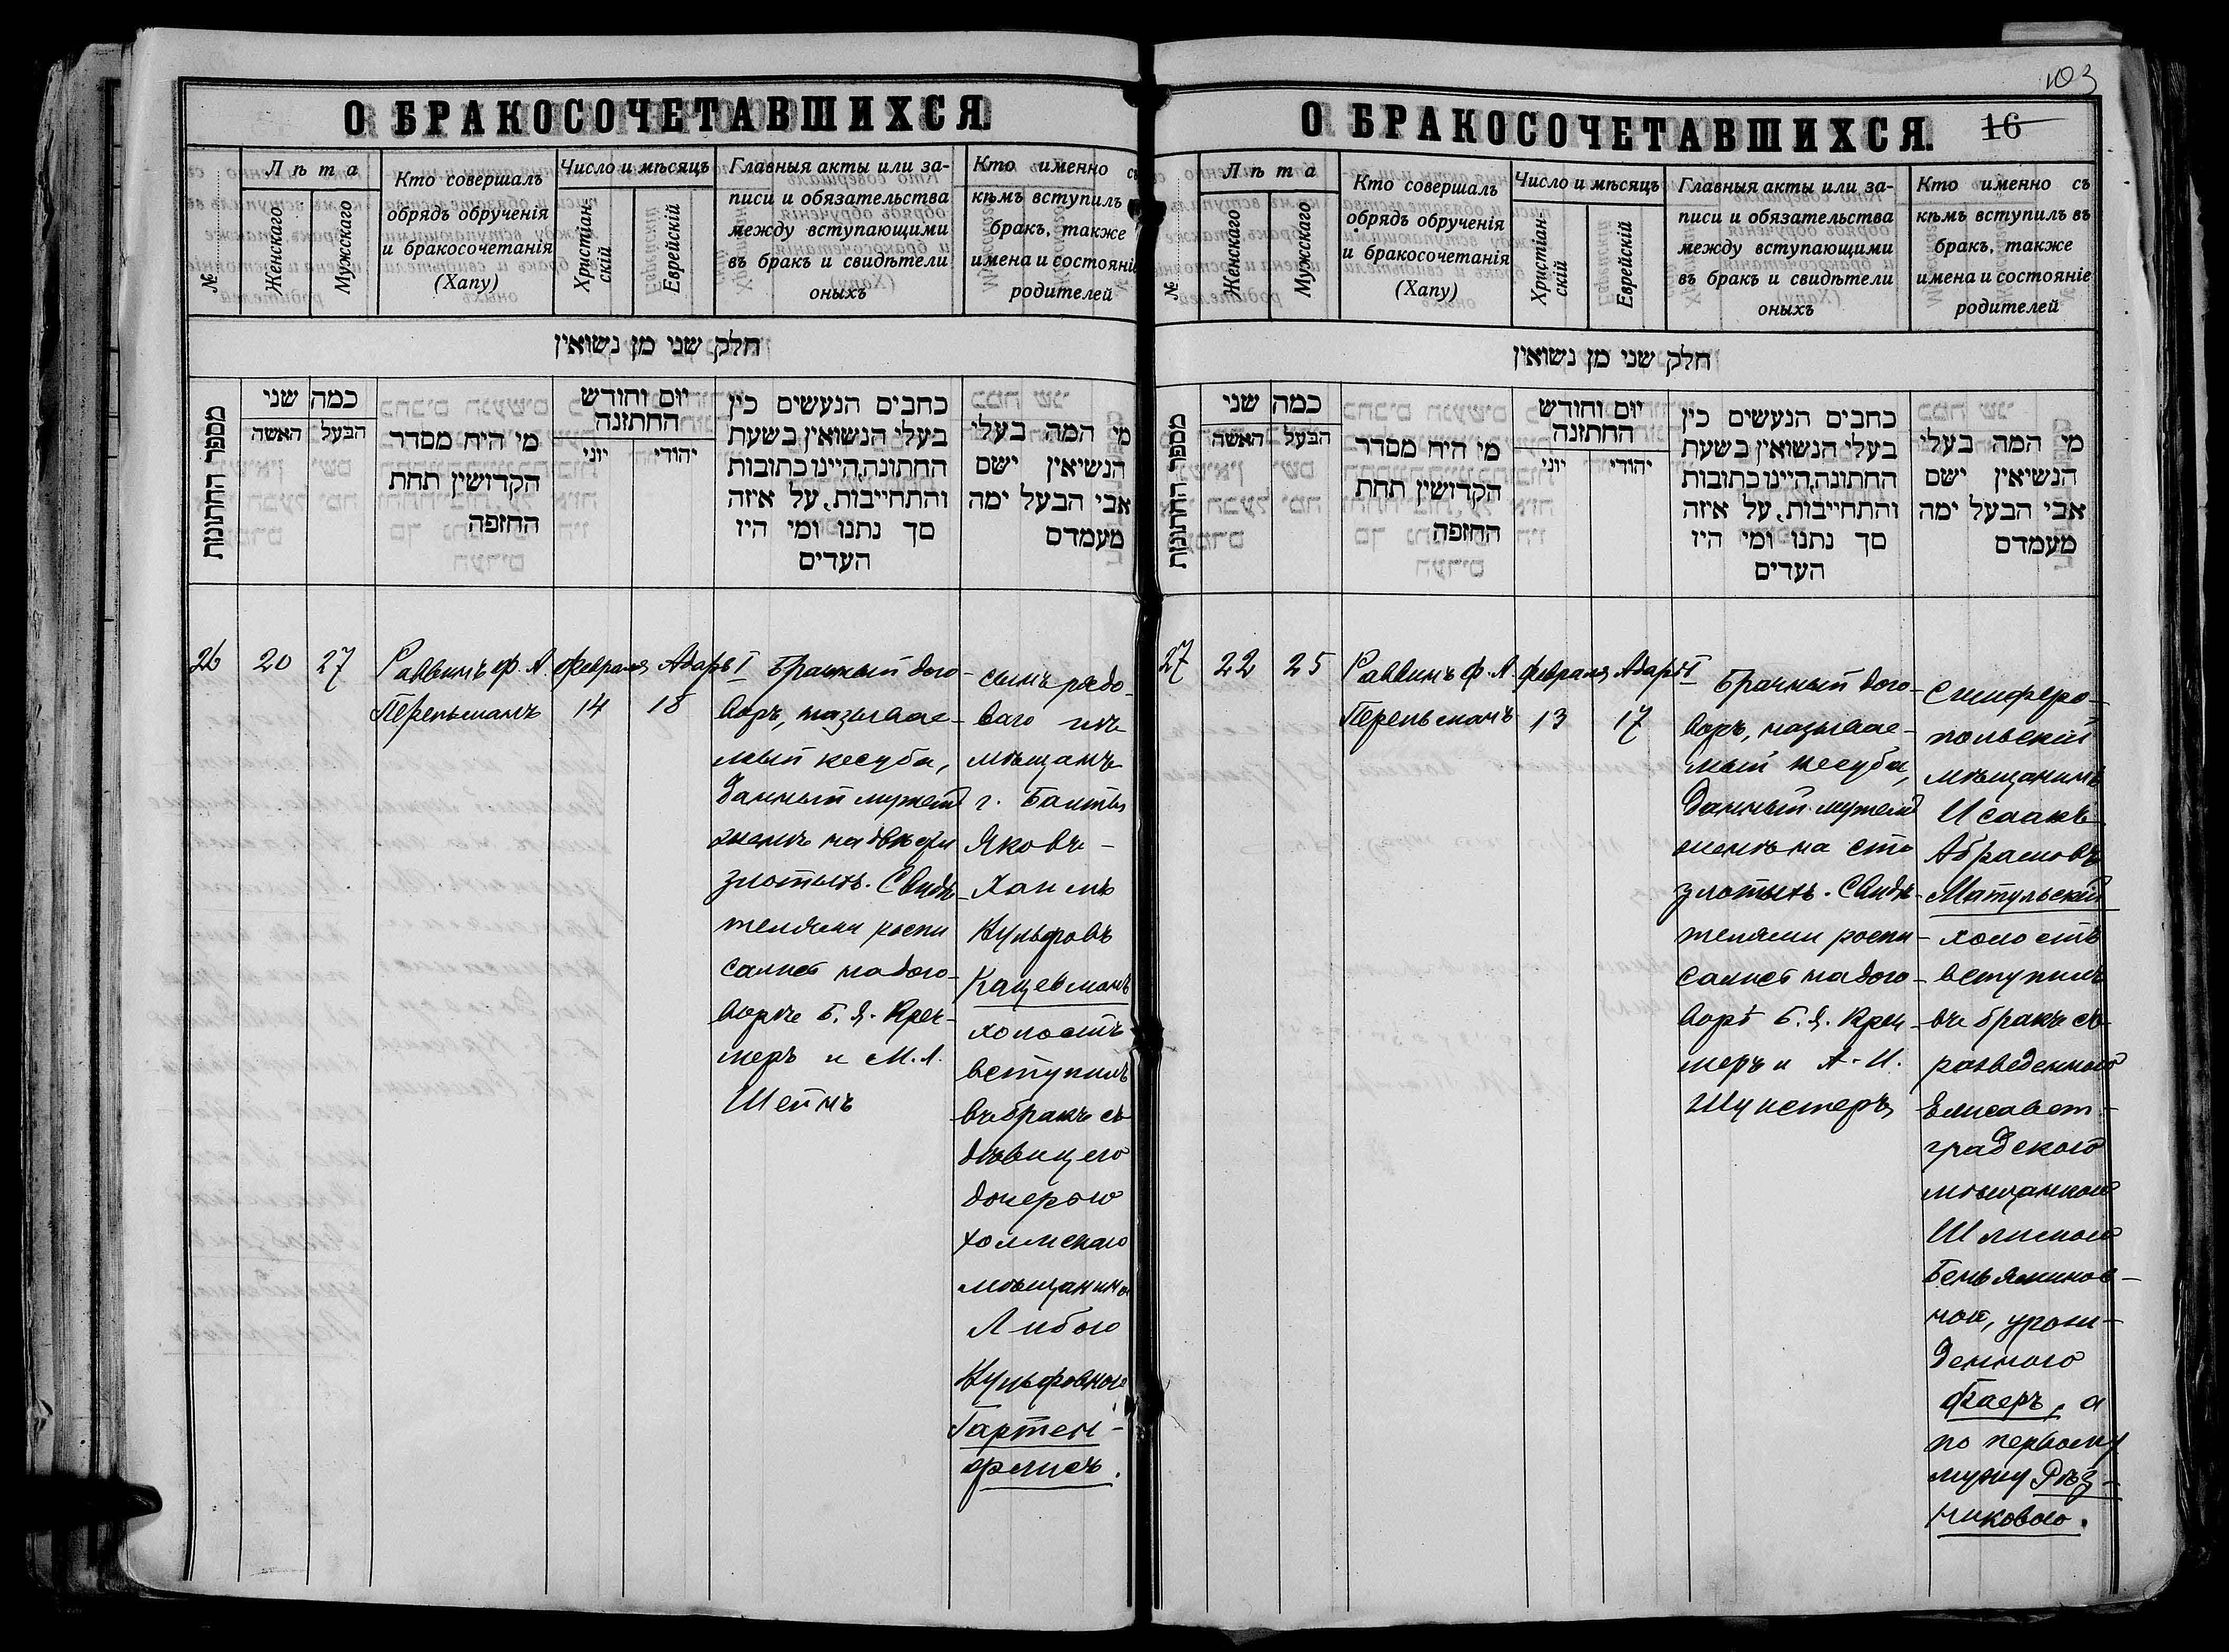 О БРАКОСОЧЕТАВШИХСЯ.
№
Лѣта
Женскаго
Мужскаго
Кто совершалъ
обрядъ обрученія
и бракосочетанія
(Хапу)
Число и мѣсяцъ
Христіан-
скій
Еврейскій
Главныя акты или за-
писи и обязательства
между вступающими
въ бракъ и свидѣтели
оныхъ
Кто именно съ
кѣмъ вступилъ
бракъ, также
имена и состояніе
родителей
חלק שני מן נשואין
מספר החתונות
כמה שני
האשה
הבעל
מי היה מסדר
הקדושין תחת
החופה
יום וחודש
החתונה
יוני
יהודי
כתבים הנעשים בין
בעלי הנשואין בשעת
החתונה, היינו כתובות
והתחייבות, על איזה
סך נתנו ומי היו
העדים
מי המה בעלי
הנשיאין ושם
אבי הבעל ומה
מעמדם
26
20
27
Раввинъ Ф. А.
Перельманъ
Февраля
14
Адаръ I
18
Брачный дого-
воръ, называе-
мый кесуба,
данный мужемъ
женѣ на двѣсти
злотыхъ. Свидѣ-
телями распи
сались на дого-
ворѣ Б. Я. Крей-
меръ и М. Л.
Шейнъ
сынъ рядо-
ваго изъ
мѣщанъ
г. Балты
Яковъ-
Хаимъ
Вульфовъ
Кацевманъ
холостъ
вступилъ
въ бракъ съ
дѣвицею
дочерью
Холмскаго
мѣщанина
Либою
Вульфовною
Гартен-
фельсъ.
103
О БРАКОСОЧЕТАВШИХСЯ.
16
№
Лѣта
Женскаго
Мужскаго
Кто совершалъ
обрядъ обрученія
и бракосочетанія
(Хапу)
Число и мѣсяцъ
Христіан-
скій
Еврейскій
Главныя акты или за-
писи и обязательства
между вступающими
въ бракъ и свидѣтели
оныхъ
Кто именно съ
кѣмъ вступилъ въ
бракъ, также
имена и состояніе
родителей
חלק שני מן נשואין
מספר החתונות
כמה שני
האשה
הבעל
מי היה מסדר
הקדושין תחת
החופה
יום וחודש
החתונה
יוני
יהודי
כתבים הנעשים בין
בעלי הנשואין בשעת
החתונה, היינו כתובות
והתחייבות, על איזה
סך נתנו ומי היו
העדים
מי המה בעלי
הנשיאין ושם
אבי הבעל ומה
מעמדם
27
22
25
Раввинъ Ф. А.
Перельманъ
Февраля
13
Адаръ I
17
Брачный дого-
воръ, называе-
мый кесуба,
данный мужемъ
женѣ на сто
злотыхъ. Свидѣ-
телями распи-
сались на дого-
ворѣ Б. Я. Крей-
меръ и А. И.
Шустеръ
Симферо-
польскій
мѣщанинъ
Исаакъ
Абрамовъ
Матульскій
холостъ
вступилъ
въ бракъ съ
разведенною
Елисавет-
градскою
мѣщанкою
Беньяминов-
ной, урож-
денною
Баеръ, а
по первому
мужу Рѣз-
никовою.